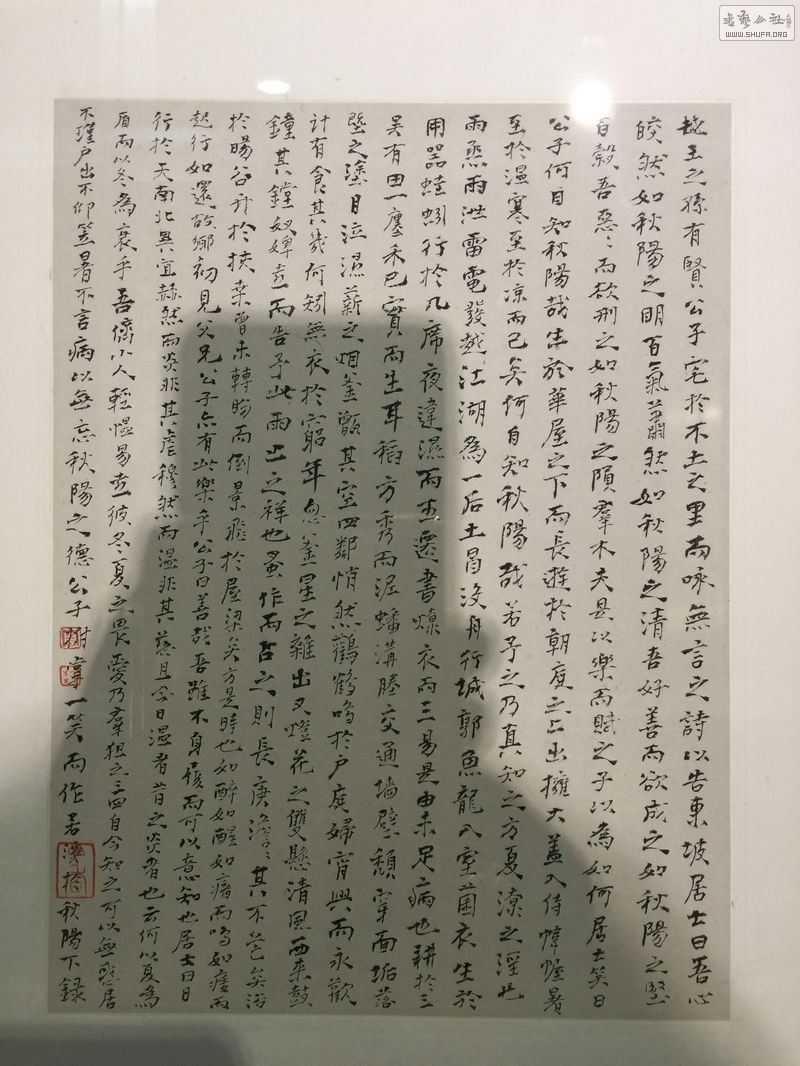 越王之孫有賢公子宅於不土之里而咏無言之詩以告東坡居士曰吾心
皎然如秋陽之明吾氣肅然如秋陽之清吾好善而欲成之如秋陽之堅
百穀吾惡惡而欲刑之如秋陽之隕羣木夫是以樂而賦之子以為如何居士笑曰
公子何自知秋陽哉生於華屋之下而長遊於朝廷之上出擁大蓋入侍幃幄暑
至於温寒至於凉而已矣何自知秋陽哉若予之乃真知之方夏潦之淫也
雨烝雨泄雷電發越江湖為一后土冒没舟行城郭魚龍入室菌衣生於
用器蛙蚓行於几席夜違濕而五遷書燎衣而三易是由未足病也耕於三
吴有田一廛禾已實而生耳稻方秀而泥蟠溝塍交通墻壁頹穿面垢落
塈之塗目泣濕薪之烟釜甑其空四鄰悄然鸛鶴鳴於户庭婦宵興而永歎
計有食其幾何矧無衣於窮年忽釜星之雜出又燈花之雙懸清風西來鼓
鐘其鏜奴婢喜而告予此雨止之祥也蚤作而占之則長庚澹澹其不芒矣浴
於暘谷升於扶桑曾未轉盼而倒景飛於屋梁矣方是時也如醉如醒如瘖而鳴如痿而
起行如還故鄉初見父兄公子亦有此樂乎公子曰善哉吾雖不身履而可以意知也居士曰日
行於天南北異宜赫然而炎非其虐穆然而温非其慈且今日温者昔之炎者也云何以夏為
盾而以冬為衰乎吾儕小人輕愠易喜彼冬夏之畏愛乃羣狙之三四自今知之可以無惑居
不墐户出不仰笠暑不言病以無忘秋陽之德公子拊掌一笑而作 秋陽下録
書藝公社
WWW.SHUFA.ORG